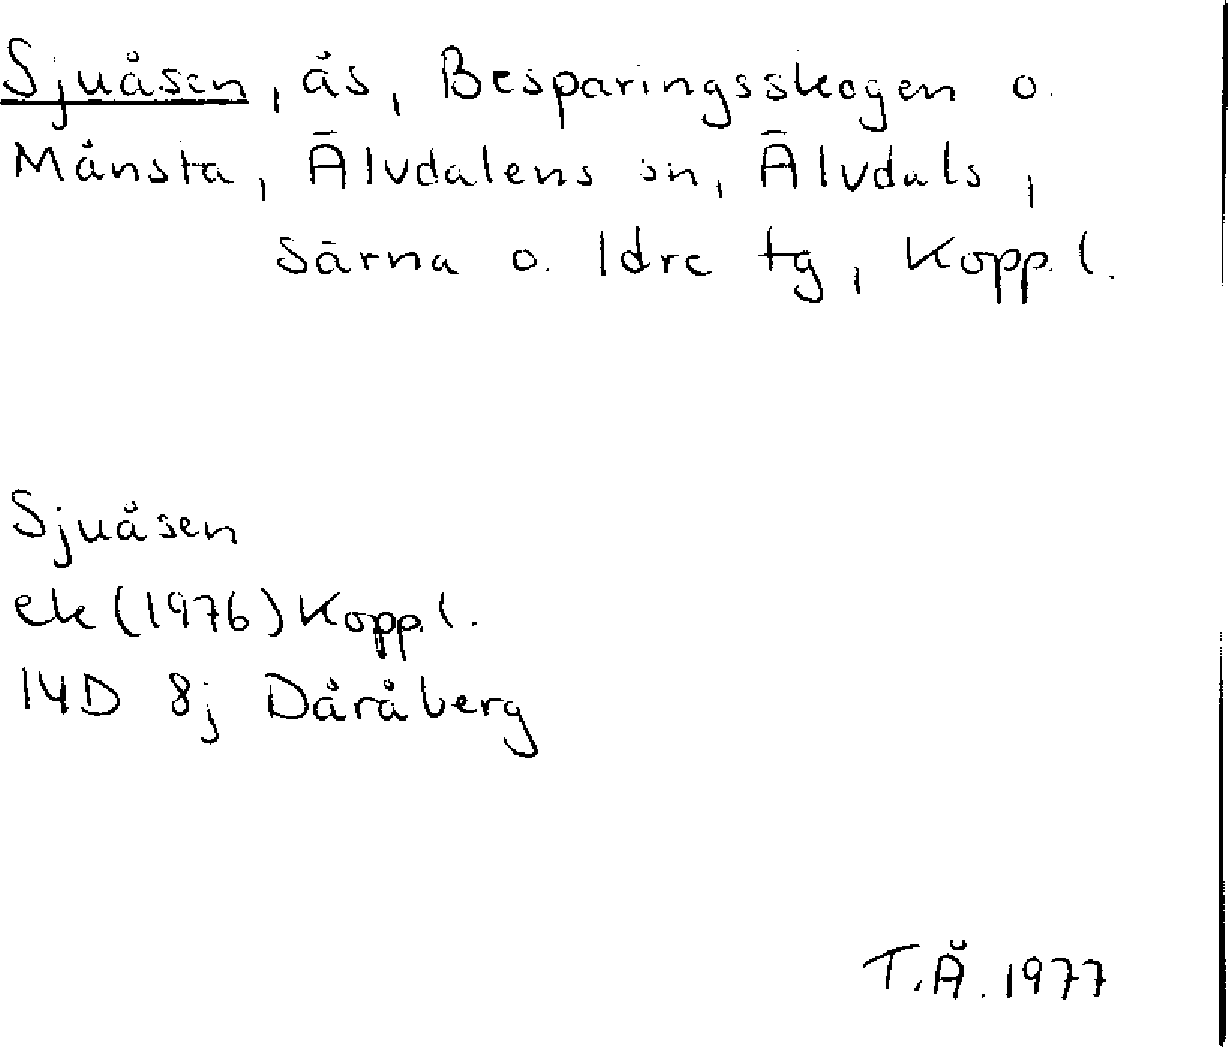 Sjuåsen, ås, Besparingsskogen o.
Månsta, Älvdalens sn, Älvdals,
Särna o. Idre tg, Kopp.l.
Sjuåsen
ek (1976) Kopp.l.
14D 8j Dåråberg
T.Å. 1977